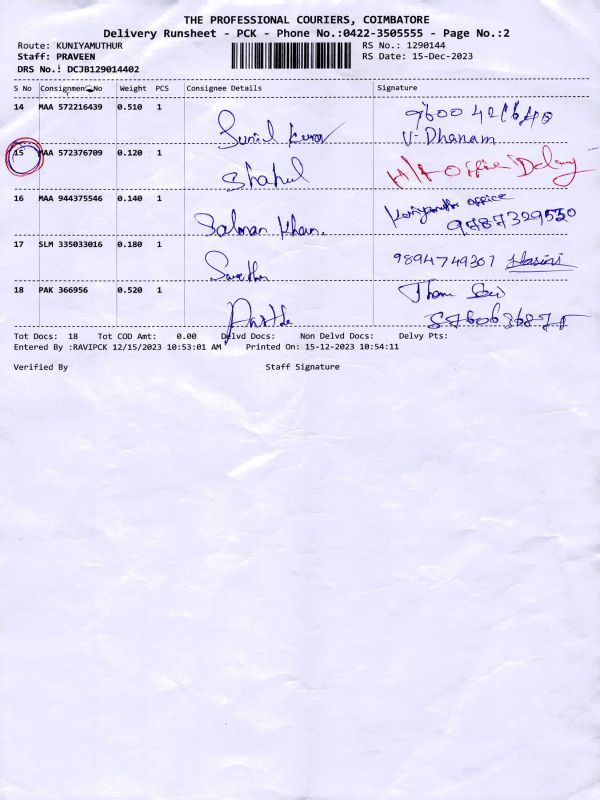 THE PROFESSIONAL COURIERS, COIMBATORE
Delivery Runsheet - PCK - Phone No.:0422-3505555 - Page No.:2
Route: KUNIYAMUTHUR RS No.: 1290144
Staff: PRAVEEN RS Date: 15-Dec-2023
DRS No.: DCJB129014402
S No Consignment No Weight PCS Consignee Details Signature
14 MAA 572216439 0.510 1 Sunil Kumar
V. Dhanam
15 MAA 572376709 0.120 1 Shahul Office Delay
16 MAA 944375546 0.140 1 Salman Khan. office
9787329530
17 SLM 335033016 0.180 1 9894749307 Hasini
18 PAK 366956 0.520 1
Tot Docs: 18 Tot COD Amt: 0.00 Delvd Docs: Non Delvd Docs: Delvy Pts:
Entered By :RAVIPCK 12/15/2023 10:53:01 AM Printed On: 15-12-2023 10:54:11
Verified By Staff Signature